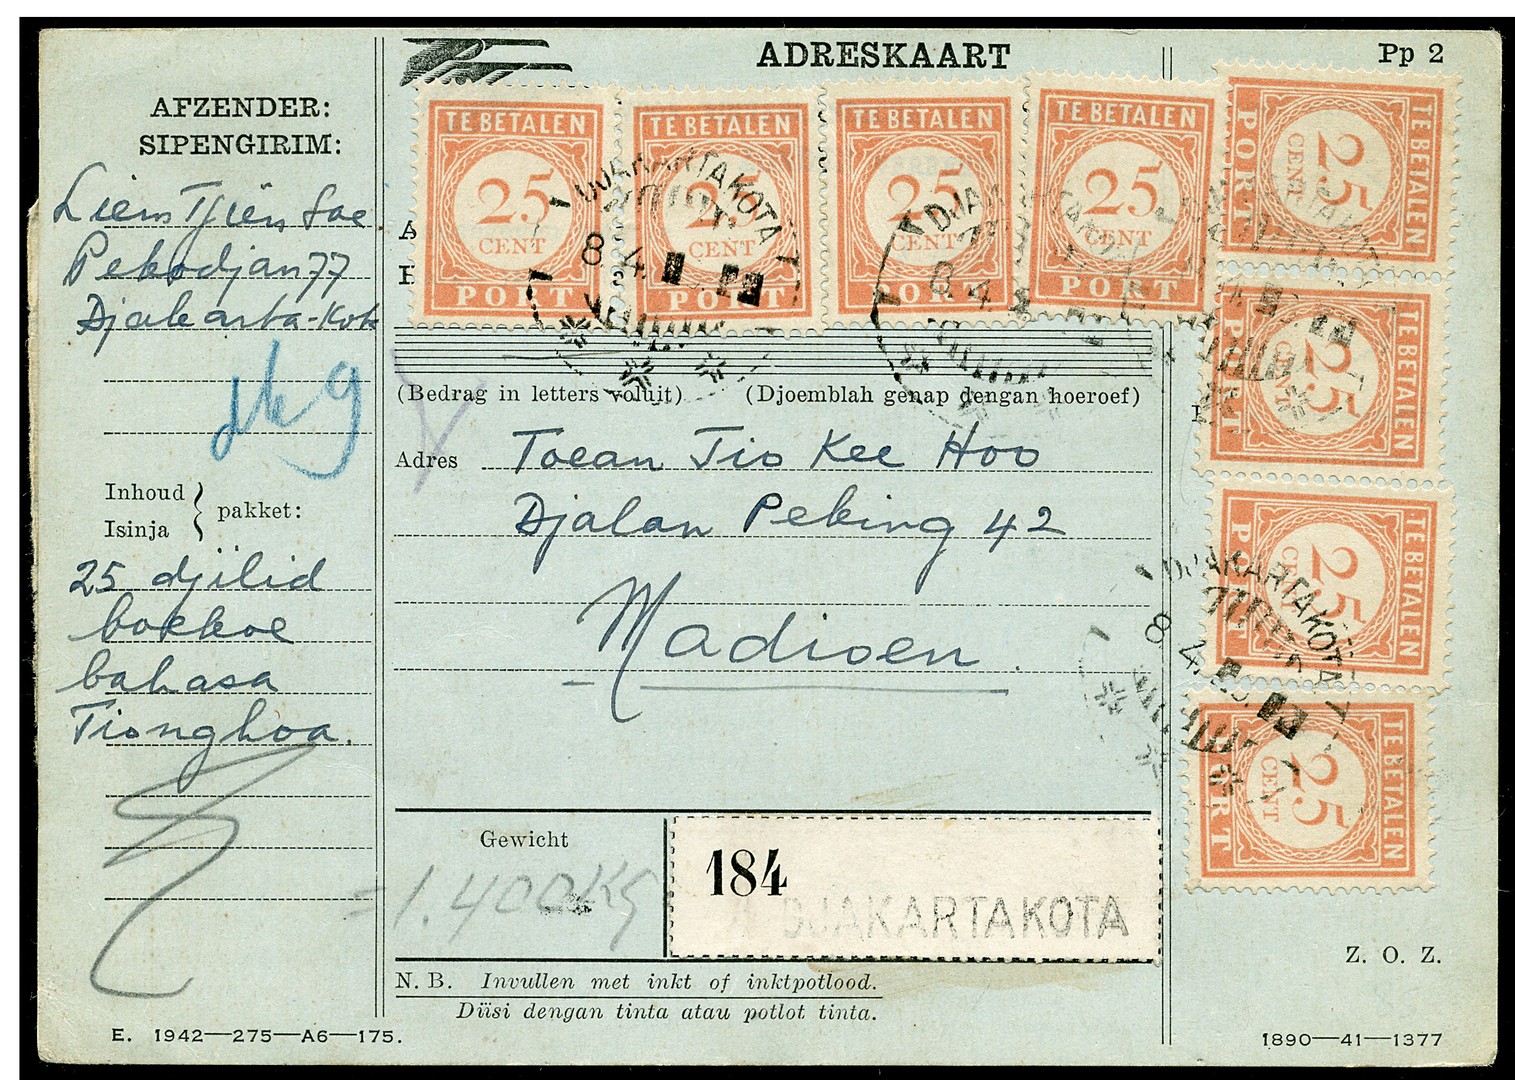 ADRESKAART
Pp 2
AFZENDER:
SIPENGIRIM:
Liem Tjien Soe
Pekodjan 77
Djakarta-Kota
Inhoud
Isinja
pakket:
25 djilid
boekoe
bahasa
Tionghoa.
TE BETALEN
25
CENT
PORT
TE BETALEN
25
CENT
PORT
TE BETALEN
25
CENT
PORT
TE BETALEN
25
CENT
PORT
TE BETALEN
25
CENT
PORT
TE BETALEN
25
CENT
PORT
TE BETALEN
25
CENT
PORT
TE BETALEN
25
CENT
PORT
DJAKARTAKOTA
8.4.
DJAKARTAKOTA
8.4.
DJAKARTAKOTA
8.4.
(Bedrag in letters voluit) (Djoemblah genap dengan hoeroef)
Adres Toean Tio Kee Hoo
Djalan Peking 42
Madioen.
Gewicht
1.400 Kg
184
DJAKARTAKOTA
N. B. Invullen met inkt of inktpotlood.
Diisi dengan tinta atau potlot tinta.
Z. O. Z.
E. 1942—275—A6—175.
1890—41—1377